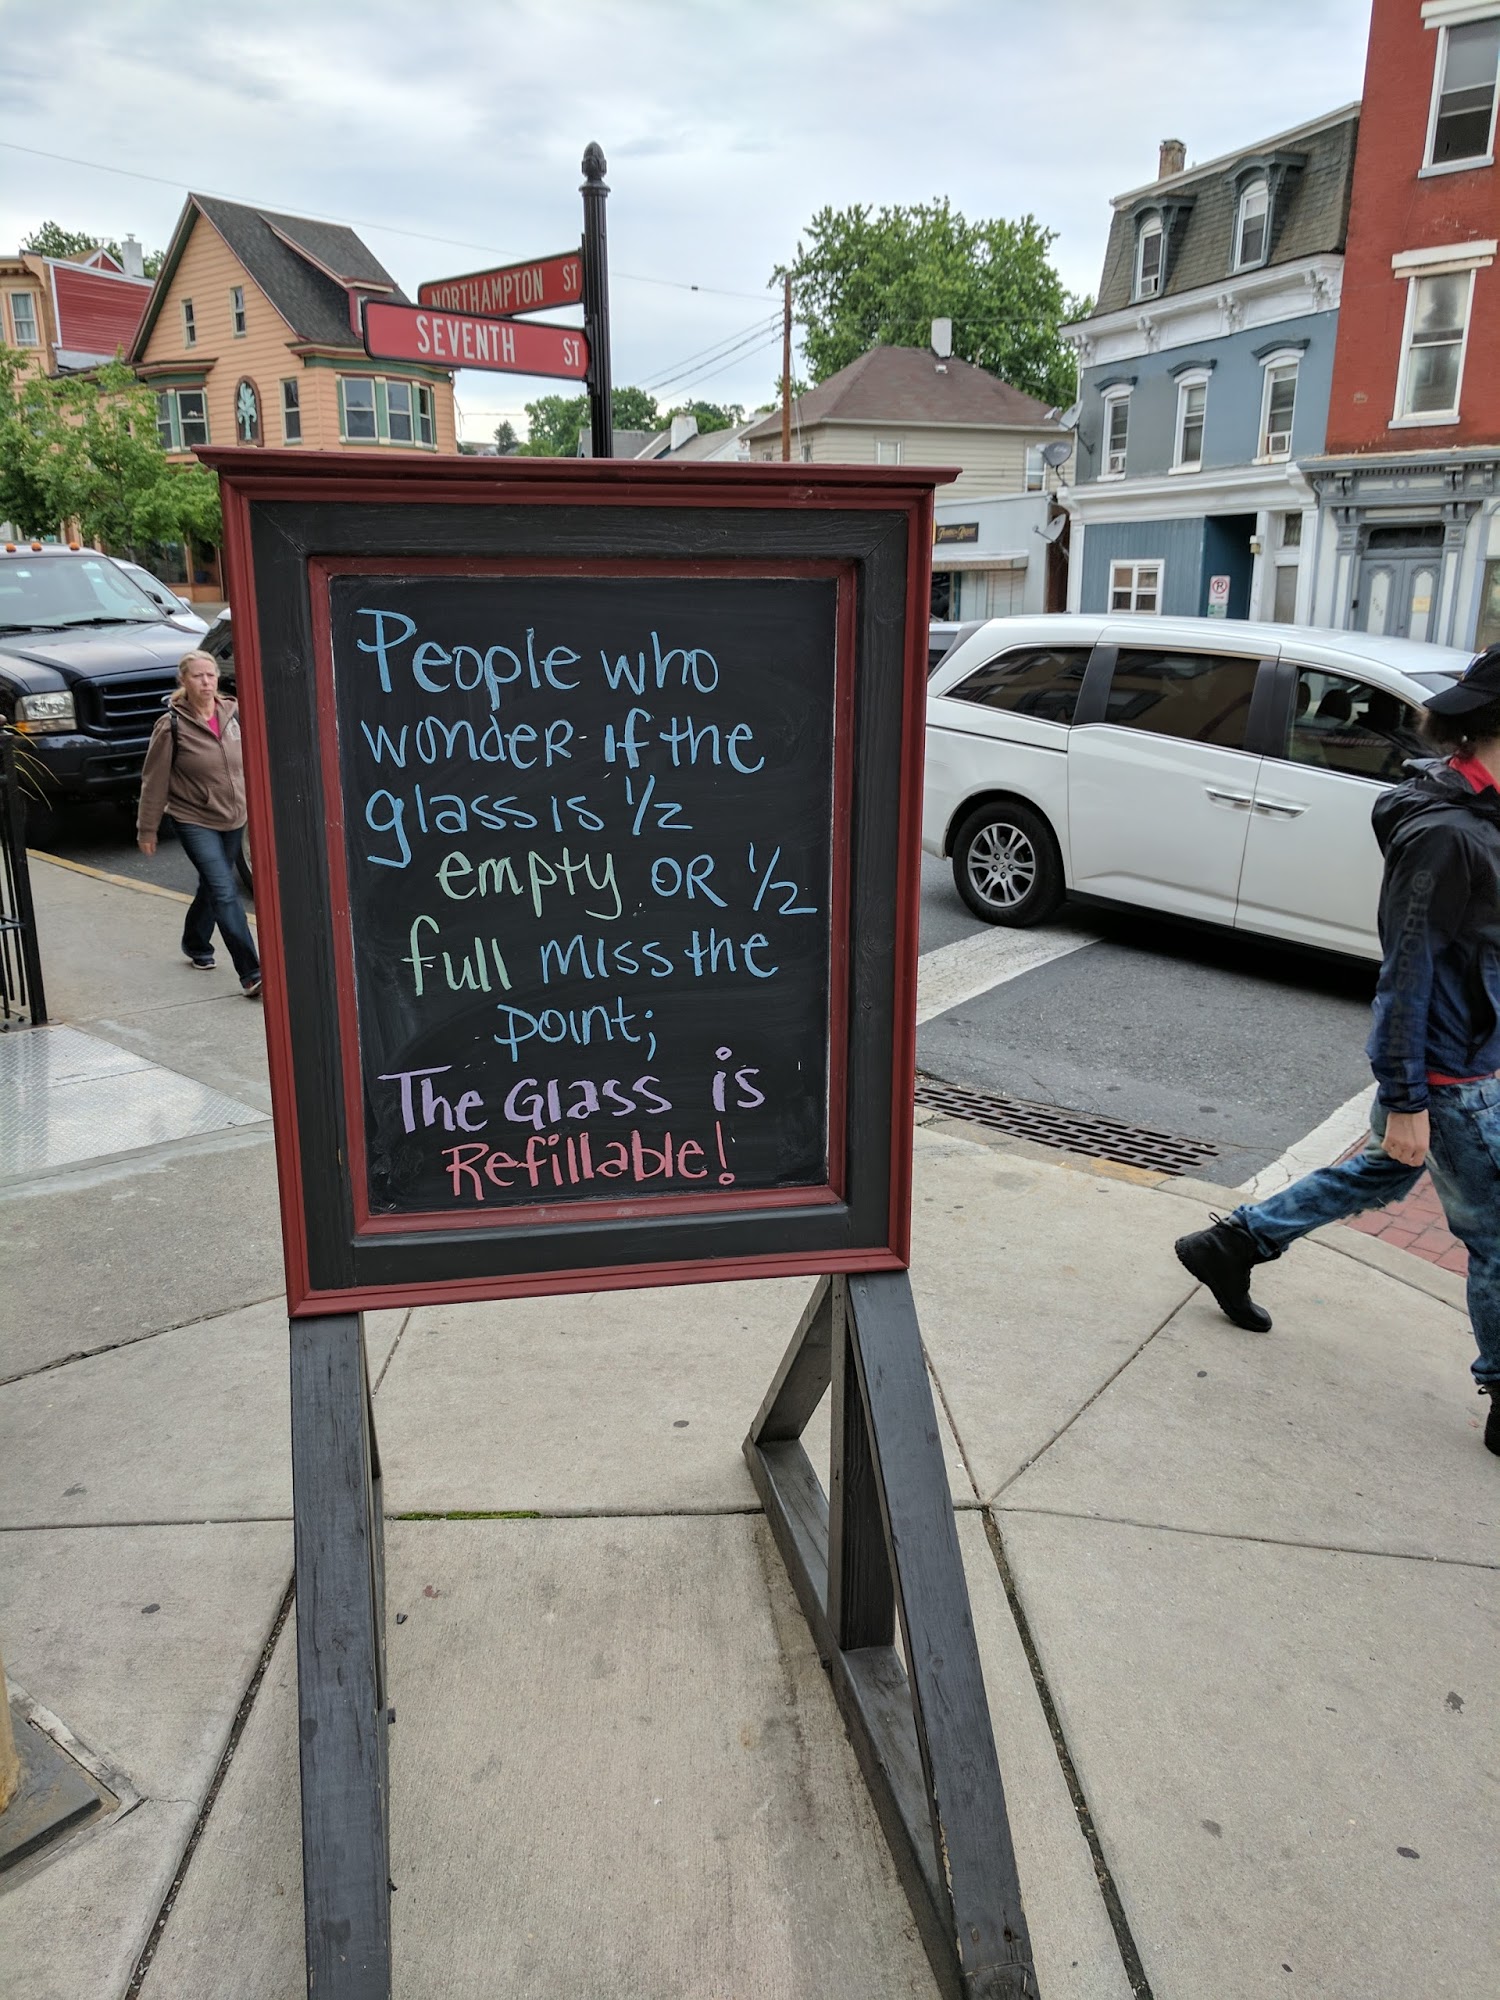 NORTHAMPTON ST
SEVENTH ST
People who
wonder if the
glass is 1/2
empty OR 1/2
full miss the
point;
The Glass is
Refillable!
SPORTS®